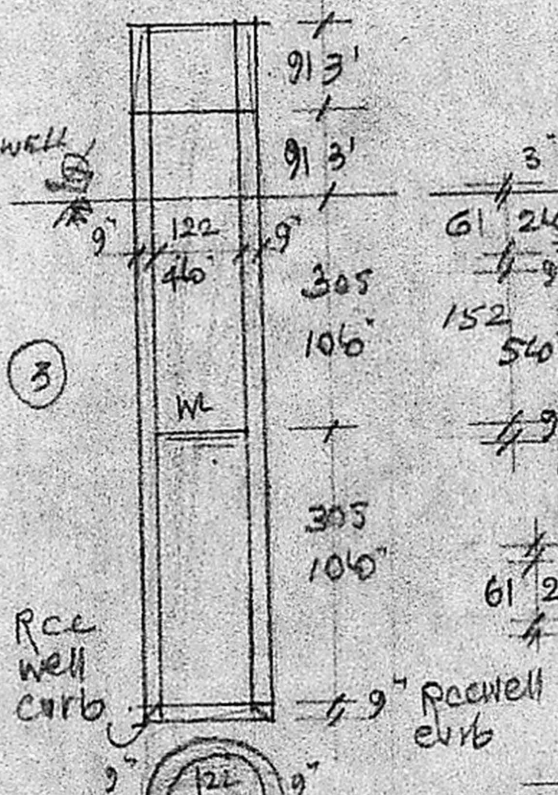 91 3'
WELL
91 3'
3"
9" 122 9"
4'0"
61
9
305
10'0"
152
5'0"
3
WL
9
305
10'0"
61 2
RCC
well
curb
9" RCC well
curb
9" 122 9"